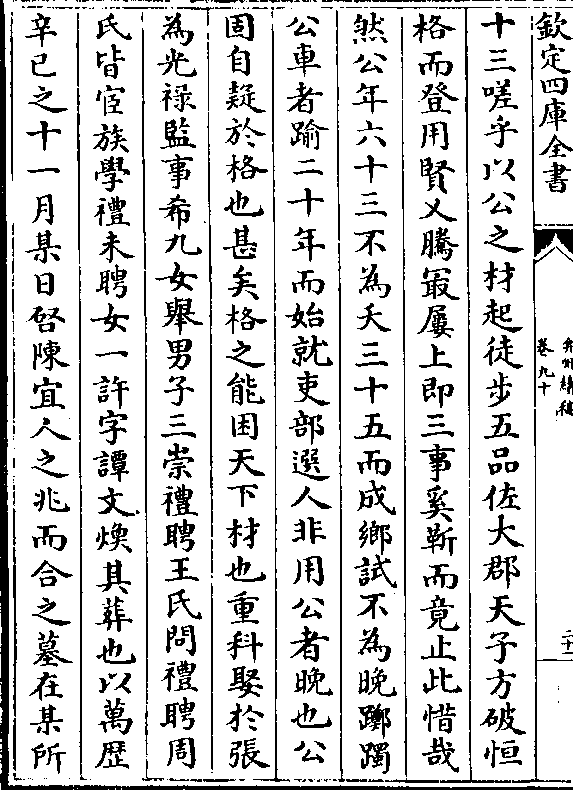 欽定四庫全書
弇州續稿
卷九十
二十二
十三嗟乎以公之材起徒步五品佐大郡天子方破恒
格而登用賢乂騰冣屢上即三事奚靳而竟止此惜哉
然公年六十三不為夭三十五而成鄉試不為晚躑躅
公車者踰二十年而始就吏部選人非用公者晚也公
固自疑於格也甚矣格之能困天下材也重科娶於張
為光禄監事希九女舉男子三崇禮聘王氏問禮聘周
氏皆宦族學禮未聘女一許字譚文煥其葬也以萬歴
辛巳之十一月某日啓陳宜人之兆而合之墓在某所